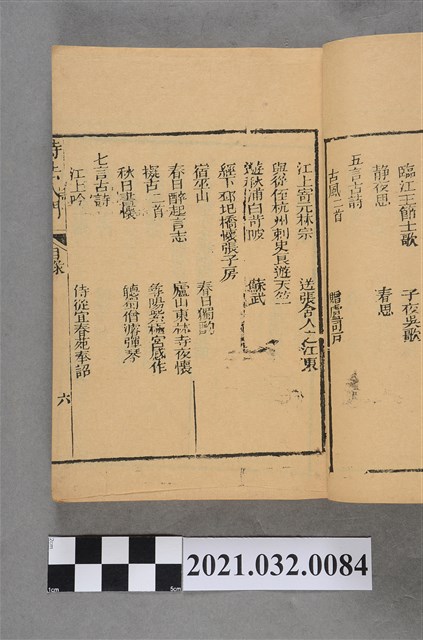 臨江王節士歌　子夜吳歌
靜夜思　春思
五言古詩
古風二首　贈盧司戶
江上寄元林宗　送張舍人之江東
與從侄杭州刺史良遊天竺
遊秋浦白笴陂　蘇武
經下邳圯橋懷張子房
宿巫山　春日獨酌
春日醉起言志　廬山東林寺夜懷
擬古二首　尋陽紫極宮感作
秋日書懷　聽蜀僧濬彈琴
七言古詩
江上吟　侍從宜春苑奉詔
詩法入門　目錄　六
2021.032.0084
1cm
5cm